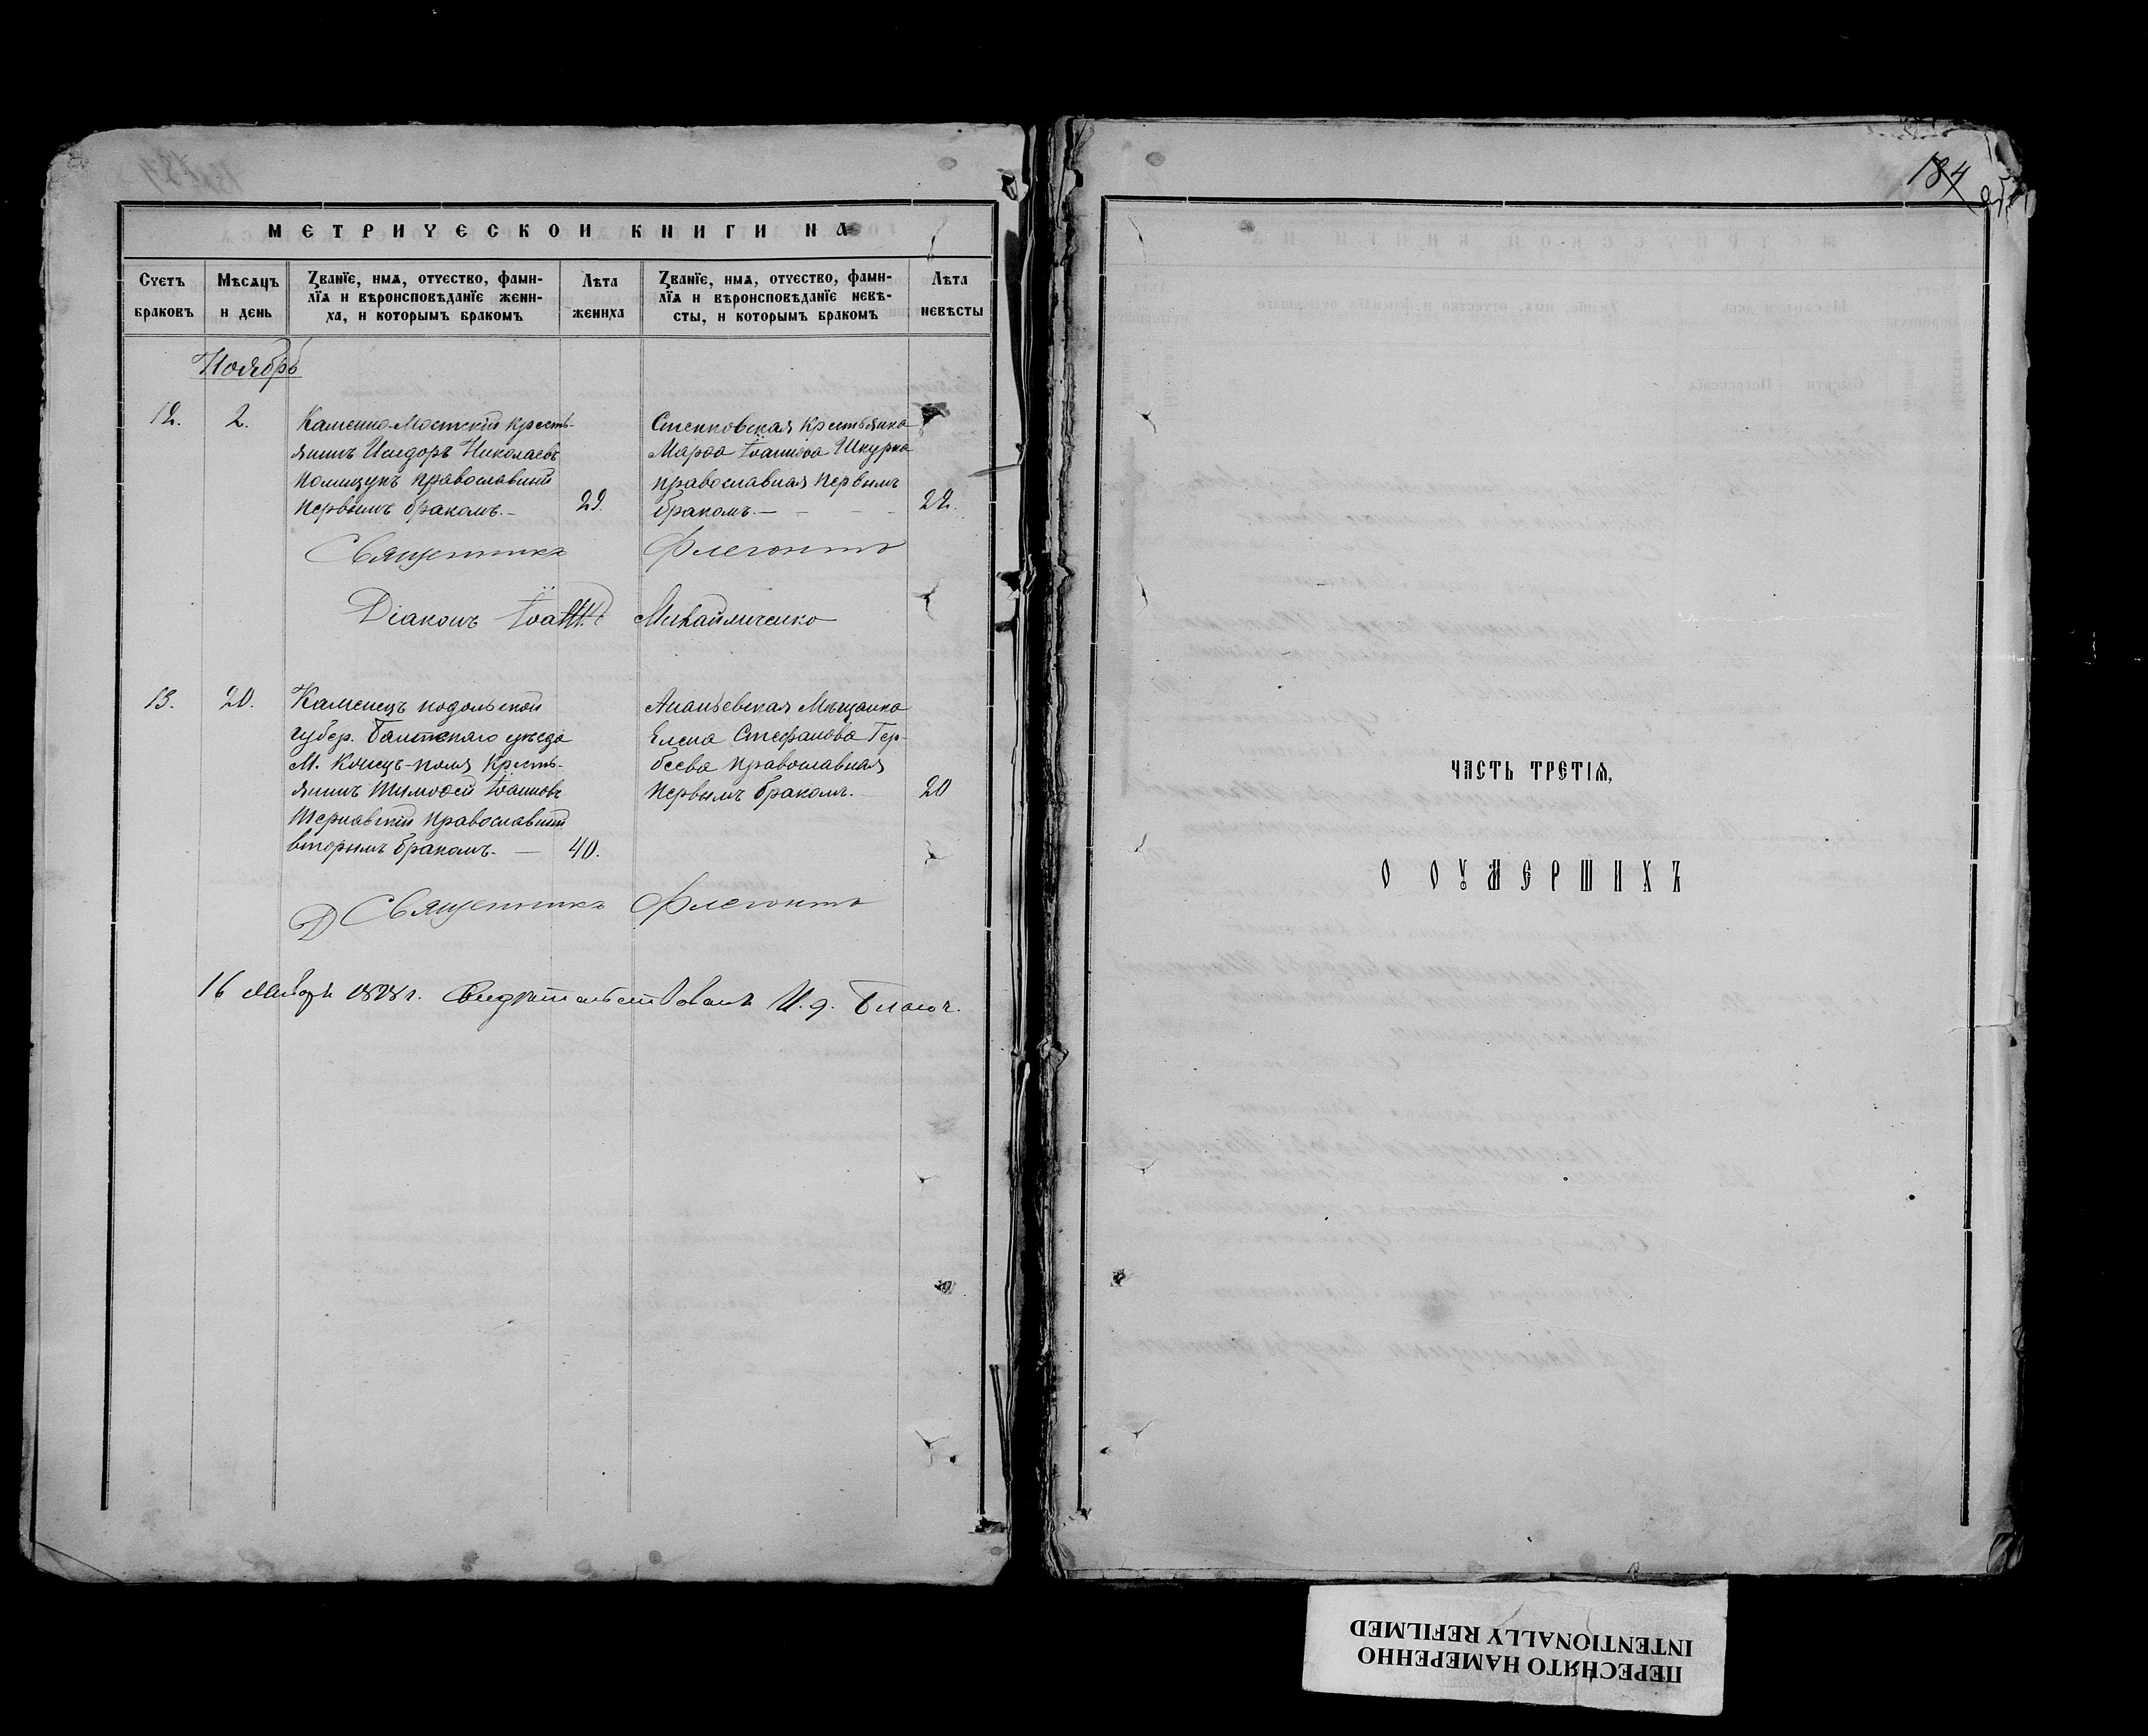 МЕТРИЧЕСКОЙ КНИГИ НА
Счетъ браковъ
Мѣсяцъ и день
Званїе, имя, отчество, фами-
лїя и вѣроисповѣданїе жени-
ха, и которымъ бракомъ
Лѣта жениха
Званїе, имя, отчество, фами-
лїя и вѣроисповѣданїе невѣ-
сты, и которымъ бракомъ
Лѣта невѣсты
Ноябрь
12.
2.
Каменно-Мостскій кресть-
янинъ Исидоръ Николаевъ
Полищукъ православный
первымъ бракомъ.-
29.
крестьянка
Марѳа Іоаннова Шкурка
православная первымъ
бракомъ.-
22.
Священникъ Флегонтъ
Діаконъ Іоаннъ Михайличенко
13.
20.
Каменецъ подольской
губер. Балтскаго уѣзда
М. Конецъ-поля кресть-
янинъ Тимоѳей Іоанновъ
православный
вторымъ бракомъ.-
40.
Ананьевская Мѣщанка
Елена Стефанова Гер-
беева православная
первымъ бракомъ.
20
Д
Священникъ Флегонтъ
16 свидѣтельствовалъ И. д. Благоч.
184
ЧАСТЬ ТРЕТІЯ,
О ОУМЕРШИХЪ
ПЕРЕСНЯТО НАМЕРЕННО
INTENTIONALLY REFILMED